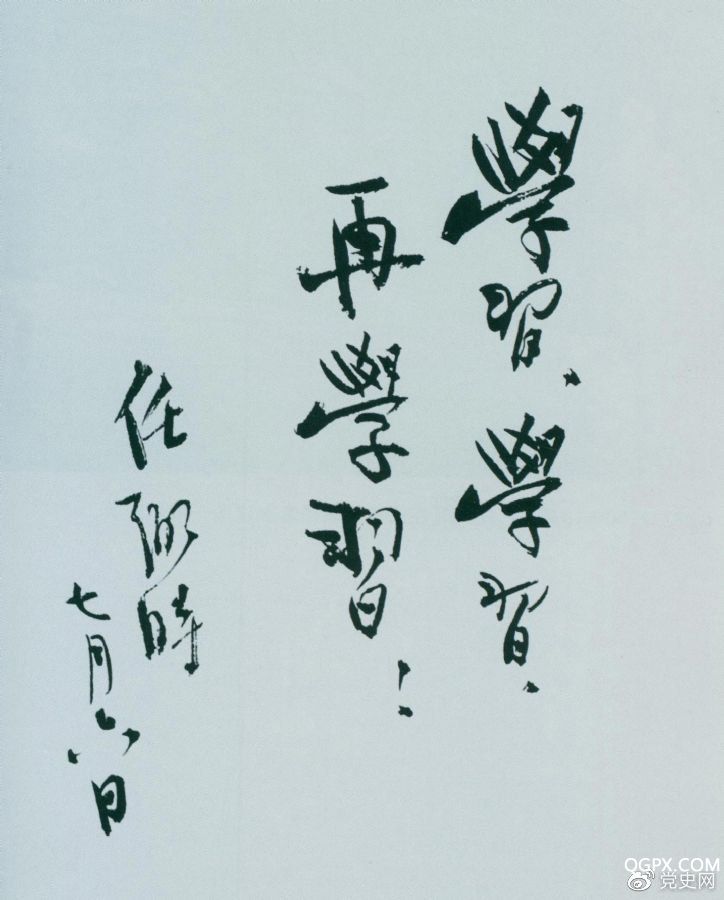 學習、學習、
再學習！
任弼時
七月六日
OGPX.COM
党史网